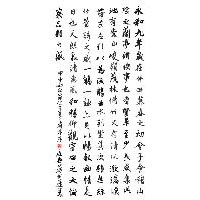 永和九年歲在癸丑暮春之初會于會稽山
陰之蘭亭修禊事也群賢畢至少長咸集此
地有崇山峻嶺茂林修竹又有清流激湍映
帶左右引以為流觴曲水列坐其次雖無絲竹
管弦之盛一觴一詠亦足以暢敘幽情是
日也天朗氣清惠風和暢仰觀宇宙之大俯
察品類之盛
甲申